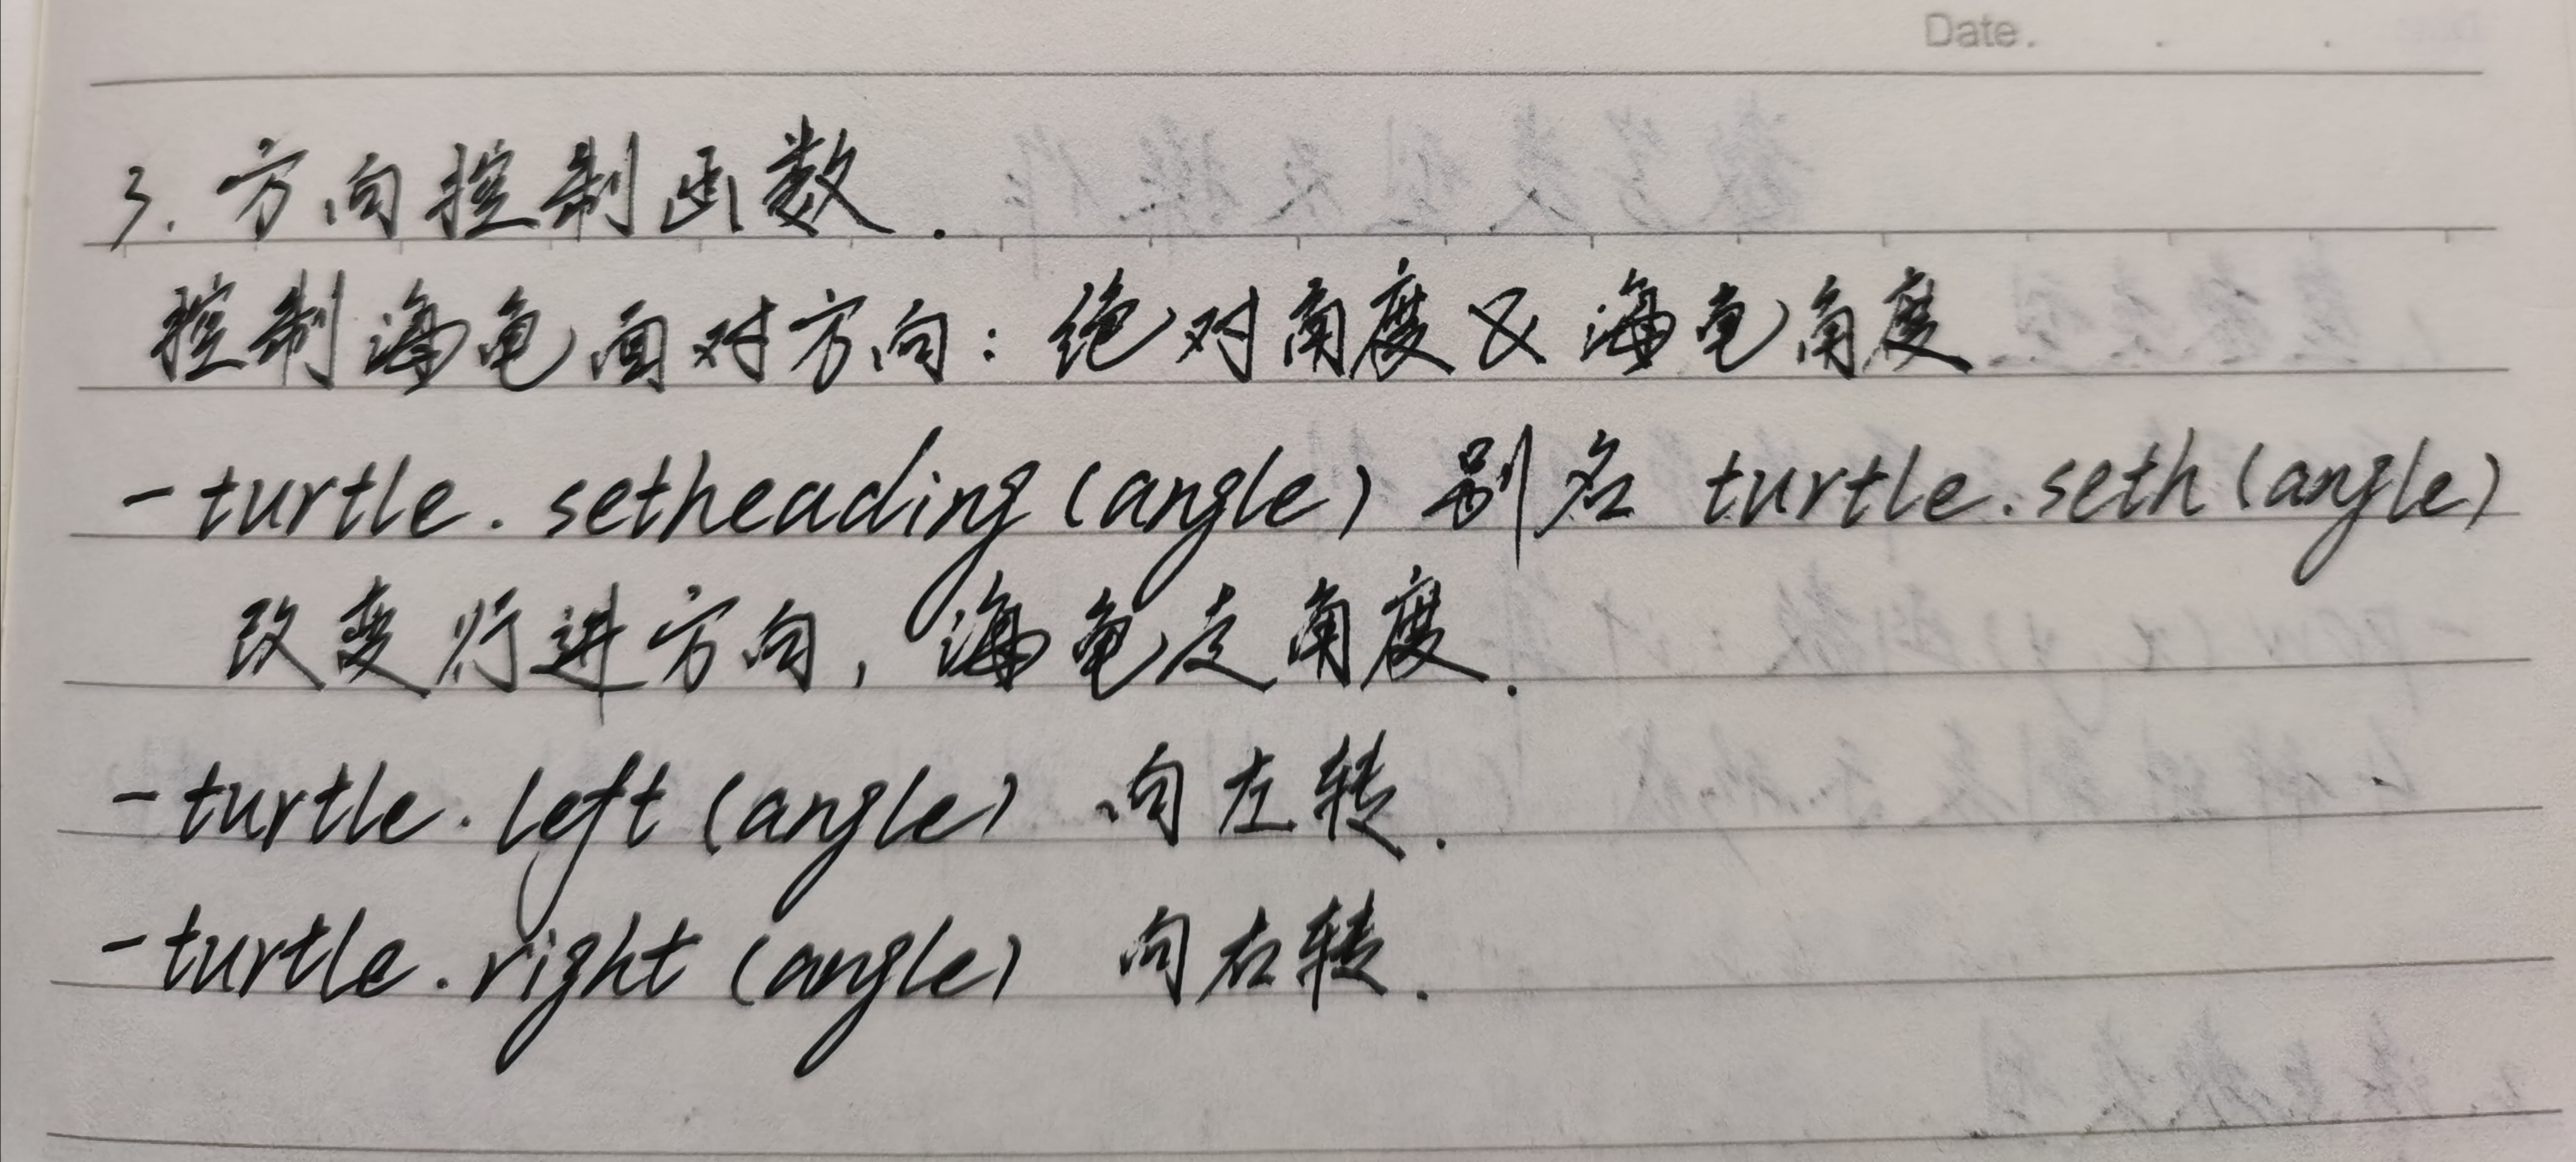 Date.
3. 方向控制函数.
控制海龟面对方向: 绝对角度 & 海龟角度
- turtle. setheading (angle) 别名 turtle.seth (angle)
改变行进方向, 海龟走角度.
- turtle. left (angle) 向左转.
- turtle. right (angle) 向右转.